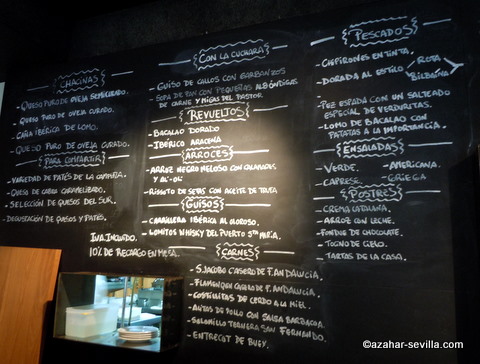 CHACINAS
- QUESO PURO DE OVEJA SEMICURADO.
- QUESO PURO DE OVEJA CURADO.
- CAÑA IBÉRICA DE LOMO.
- QUESO PURO DE OVEJA CURADO.
PARA COMPARTIR
- VARIEDAD DE PATÉS DE LA
- QUESO DE CABRA CARAMELIZADO.
- SELECCIÓN DE QUESOS DEL SUR.
- DEGUSTACIÓN DE QUESOS Y PATÉS.
I.V.A. INCLUIDO.
10% DE RECARGO EN MESA.
CON LA CUCHARA
- GUISO DE CALLOS CON GARBANZOS
- SOPA DE PAN CON PEQUEÑAS ALBÓNDIGAS
DE CARNE Y MIGAS DEL PASTOR
REVUELTOS
- BACALAO DORADO
- IBÉRICO ARACENA
ARROCES
- ARROZ NEGRO MELOSO CON CALAMARES
Y ALI-OLI
- RISSOTO DE SETAS CON ACEITE DE TRUFA
GUISOS
- CARRILLERA IBÉRICA AL OLOROSO.
- LOMITOS WHISKY DEL PUERTO STA MARÍA.
CARNES
- S. JACOBO CASERO DE P. ANDALUCIA.
- FLAMENQUÍN CASERO DE P. ANDALUCIA.
- COSTILLITAS DE CERDO A LA MIEL.
- ALITAS DE POLLO CON SALSA BARBACOA.
- SOLOMILLO TERNERA SAN FERNANDO.
- ENTRECOT DE BUEY.
PESCADOS
- CHIPIRONES EN TINTA.
- DORADA AL ESTILO
ROTA
BILBAINA
- PEZ ESPADA CON UN SALTEADO
ESPECIAL DE VERDURITAS.
- LOMO DE BACALAO CON
PATATAS A LA IMPORTANCIA.
ENSALADAS
- VERDE. - AMERICANA.
- CAPRESE. - GRIEGA
POSTRES
- CREMA CATALANA.
- ARROZ CON LECHE.
- FONDUE DE CHOCOLATE.
- TOCINO DE CIELO.
- TARTAS DE LA CASA.
©azahar-sevilla.com